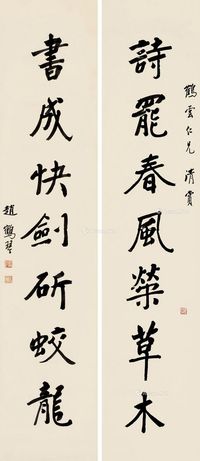 鶴雲仁兄 清賞
詩罷春風榮草木
書成快劍斫蛟龍
趙鶴琴